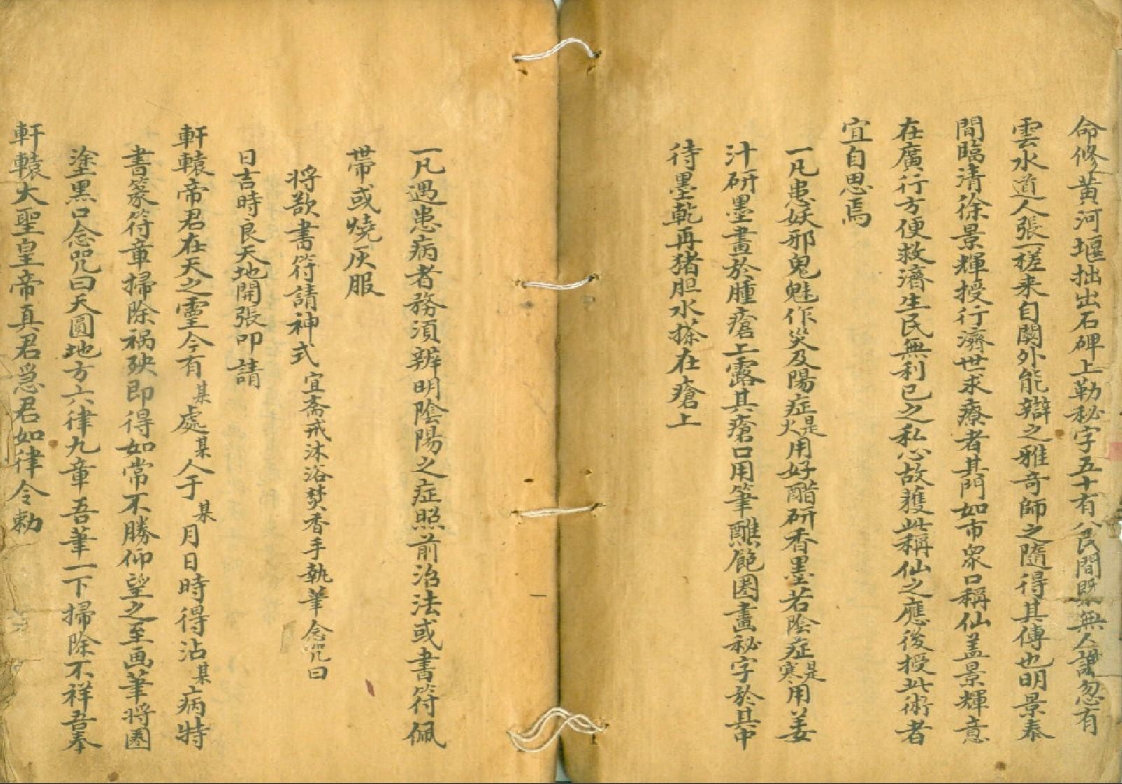 命修黄河堰拙出石碑上勒秘字五十有八民間既無人識忽有
雲水道人張一槎來自関外能辯之雅奇師之隨得其傳也明景泰
間臨清徐景輝授行濟世求療者其門如市衆口稱仙盖景輝意
在廣行方便救濟生民無利已之私心故獲此稱仙之應後授此術者
宜自思焉
一凡患妖邪鬼魅作災及陽症是火用好醋研香墨若陰症是寒用姜
汁研墨畫於腫瘡上露其瘡口用筆醮飽圏畫秘字於其中
待墨乾再猪胆水搽在瘡上
一凡遇患病者務須辨明陰陽之症照前治法或書符佩
帶或燒灰服
将欲書符請神式宜齋戒沐浴焚香手執筆念咒曰
日吉時良天地開張叩請
軒轅帝君在天之靈今有某處某人于某月日時得沾某病特
書篆符章掃除禍殃即得如常不勝仰望之至画筆将圏
塗黑口念咒曰天圓地方六律九章吾筆一下掃除不祥吾奉
軒轅大聖皇帝真君急君如律令勅